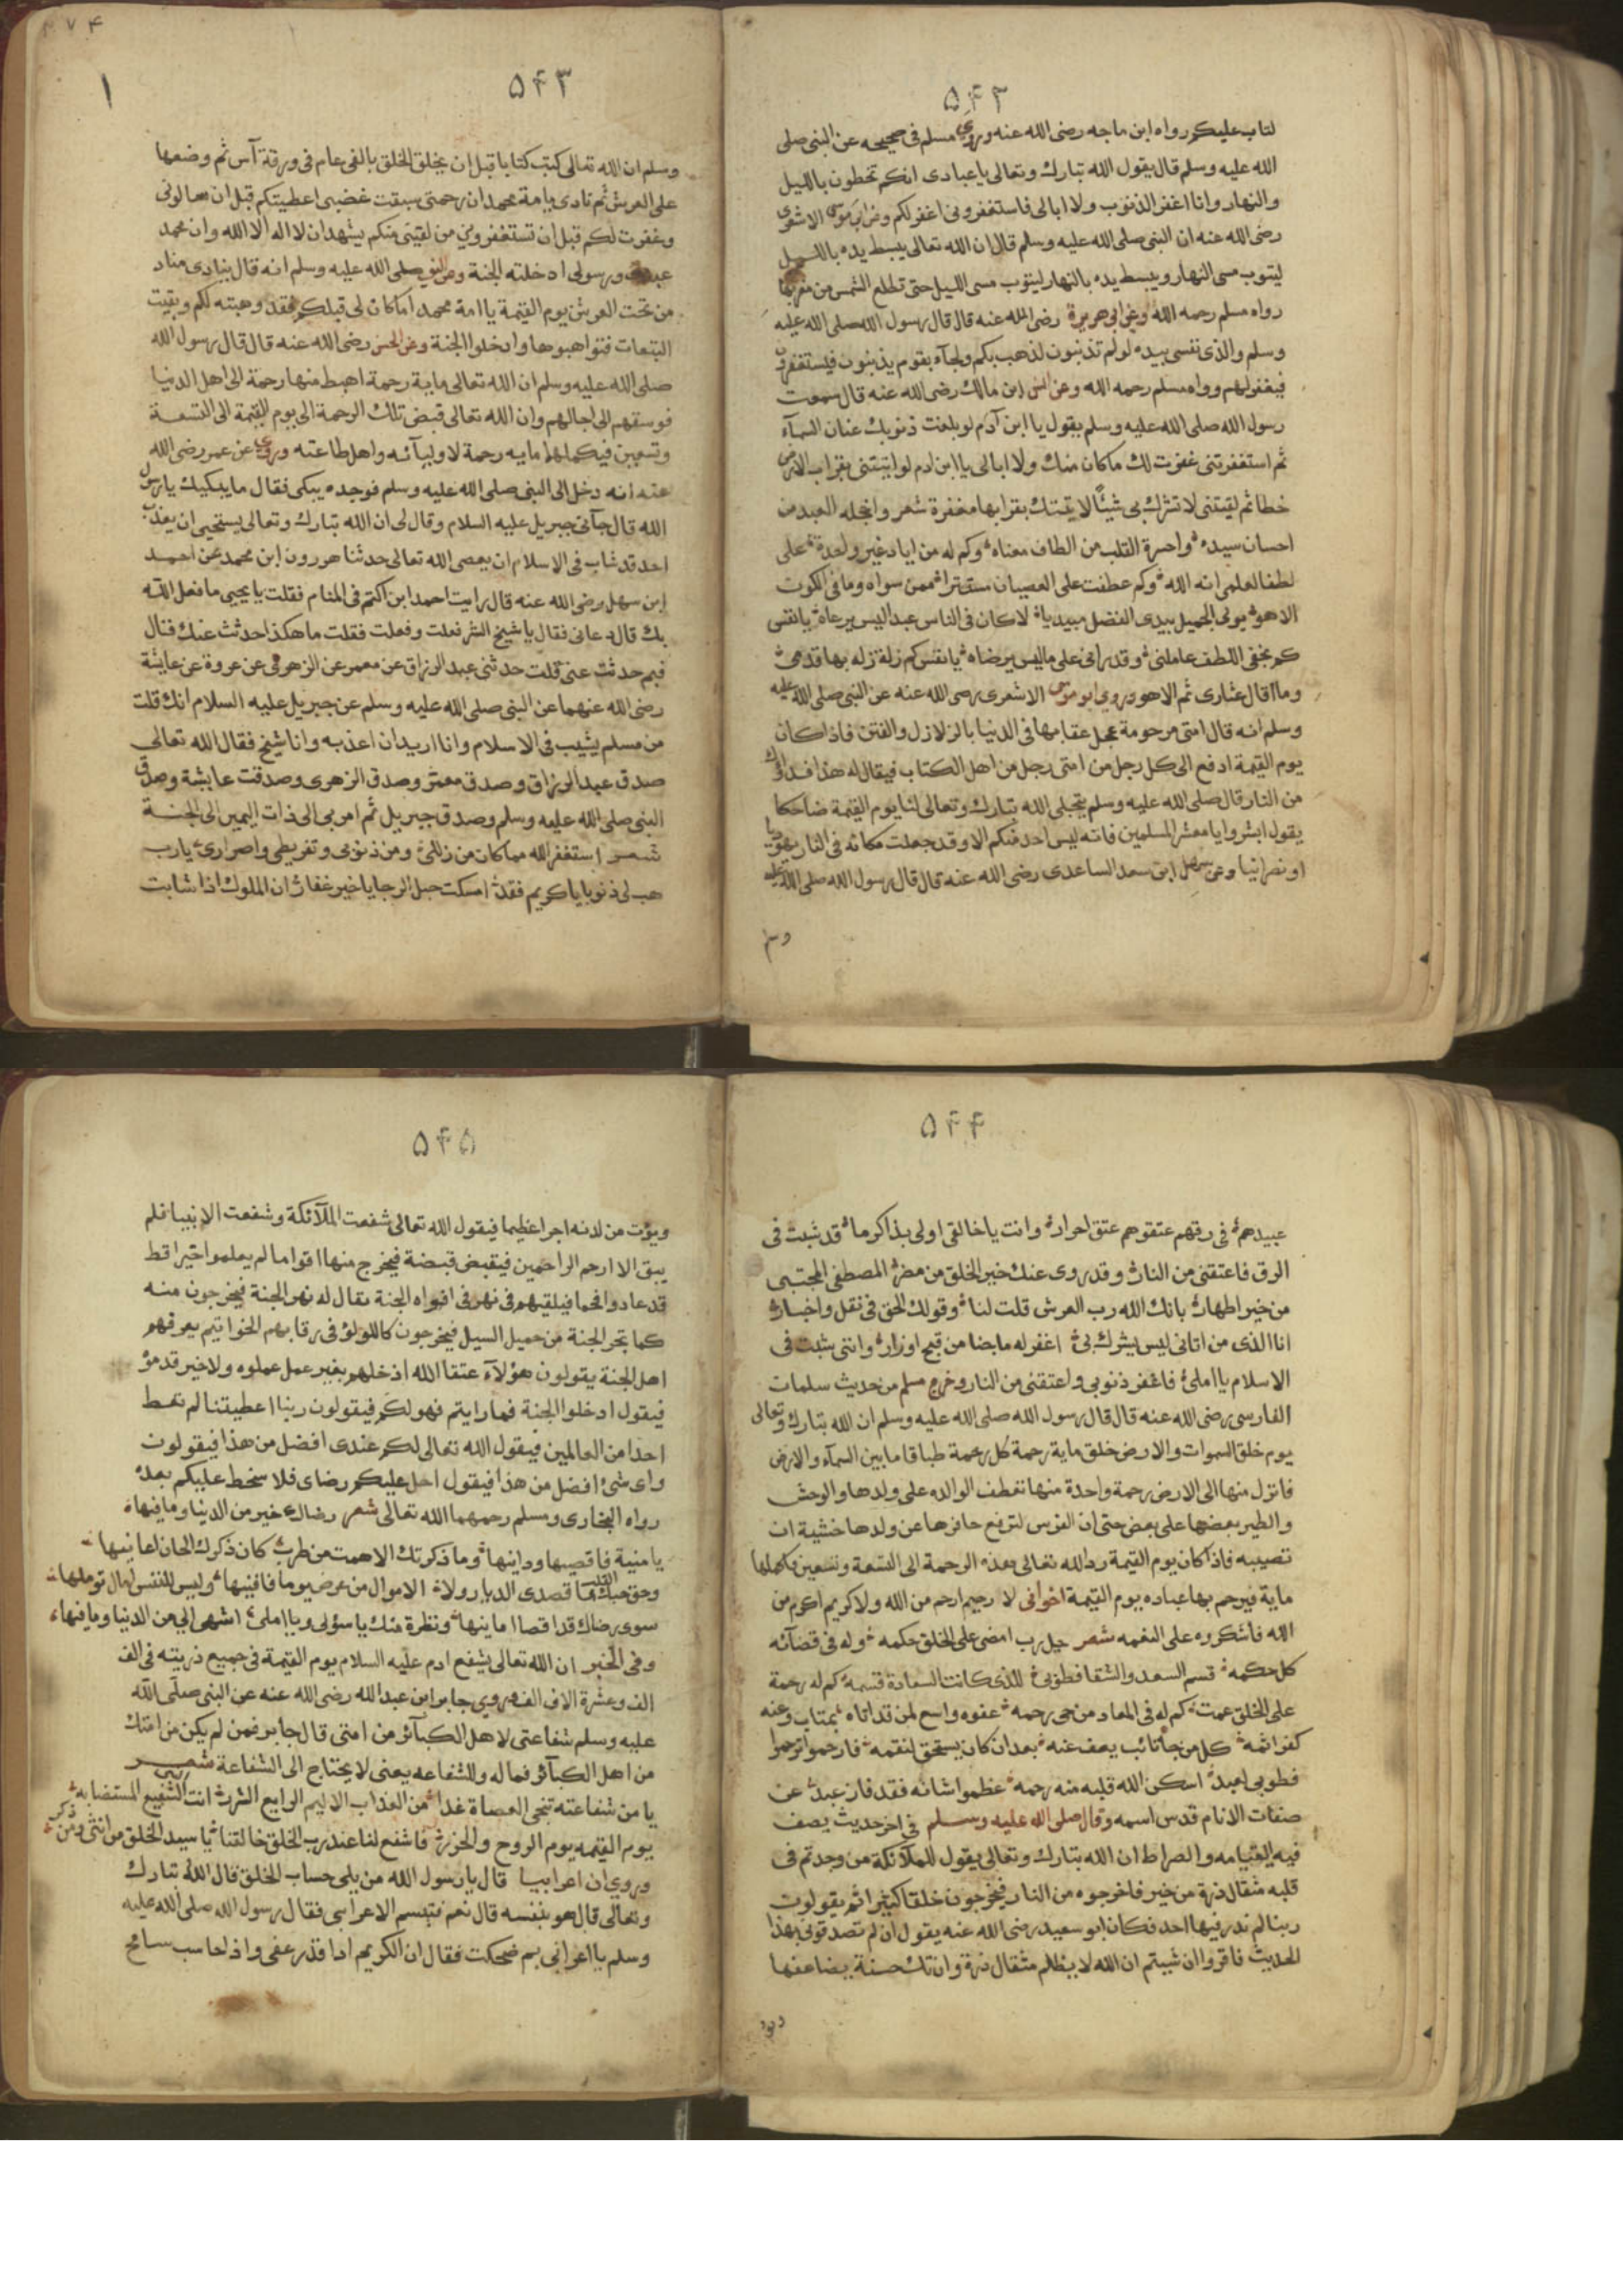 ۵۴۲
لتاب عليكم رواه ابن ماجه رضى الله عنه وروي مسلم فى صحيحه عن النبى صلى
الله عليه وسلم قال يقول الله تبارك وتعالى يا عبادى انكم تخطون بالليل
والنهار وانا اغفر الذنوب ولا ابالى فاستغفرونى اغفر لكم وعن ابى موسى الاشعرى
رضى الله عنه ان النبى صلى الله عليه وسلم قال ان الله تعالى يبسط يده بالليل
ليتوب مسى النهار ويبسط يده بالنهار ليتوب مسى الليل حتى تطلع الشمس من مغربها
رواه مسلم رحمه الله وعن ابى هريرة رضى الله عنه قال قال رسول الله صلى الله عليه
وسلم والذى نفسى بيده لو لم تذنبون لذهب بكم ولجآء بقوم يذنبون فيستغفرون
فيغفر لهم رواه مسلم رحمه الله وعن انس ابن مالك رضى الله عنه قال سمعت
رسول الله صلى الله عليه وسلم يقول يا ابن آدم لو بلغت ذنوبك عنان السمآء
ثم استغفرتنى غفرت لك ما كان منك ولا ابالى يا ابن ادم لو اتيتنى بقراب الارض
خطا ثم لقيتنى لا تشرك بى شيئًا لاتيتك بقرابها مغفرة شعر واخجله العبد من
احسان سيده واحسرة القلب من الطاف معناه وكم له من اياد غير واحدة على
لطفا لعلمى انه الله وكم عطفت على العصيان مستترا ممن سواه وما فى الكون
الا هو مولى الجميل بيدى الفضل مبيديا لا كان فى الناس عبد اليس يرعاه يا نفس
كم بخفى اللطف عاملنى وقد رانى على ما ليس يرضاه يا نفس كم زلة زله بها قدمى
وما اقال عثارى ثم الا هو وروي ابو موسى الاشعرى رضى الله عنه عن النبى صلى الله عليه
وسلم انه قال امتى مرحومة عجل عقابها فى الدنيا بالزلازل والفتن فاذا كان
يوم القيمة ادفع الى كل رجل من امتى رجل من اهل الكتاب فيقال له هذا فداؤك
من النار قال صلى الله عليه وسلم يتجلى الله تبارك وتعالى لنا يوم القيمة ضاحكا
يقول ابشروا يا معشر المسلمين فانه ليس احد منكم الا وقد جعلت مكانه فى النار يهوديا
او نصرانيا وعن سهل ابن سعد الساعدى رضى الله عنه قال قال رسول الله صلى الله عليه
وسلم
۴۷۴
۵۴۳
۱
وسلم ان الله تعالى كتب كتابا قبل ان يخلق الخلق بالفى عام فى ورقة آس ثم وضعها
على العرش ثم نادى يا امة محمد ان رحمتى سبقت غضبى اعطيتكم قبل ان تسالونى
وغفرت لكم قبل ان تستغفرونى من لقينى منكم يشهد ان لا اله الا الله وان محمد
عبدى ورسولى ادخلته الجنة وعن النبى صلى الله عليه وسلم انه قال ينادى مناد
من تحت العرش يوم القيمة يا امة محمد اما كان لى قبلكم فقد وهبته لكم وبقيت
التبعات فتواهبوها وادخلوا الجنة وعن الحسن رضى الله عنه قال قال رسول الله
صلى الله عليه وسلم ان الله تعالى ماية رحمة اهبط منها رحمة الى اهل الدنيا
فوسعتهم الى اجالهم وان الله تعالى قبض تلك الرحمة الى يوم القيمة الى التسعة
وتسعين فيكملها مايه رحمة لاوليآئه واهل طاعته وروي عن عمر رضى الله
عنه انه دخل الى النبى صلى الله عليه وسلم فوجده يبكى فقال ما يبكيك يا رسول
الله قال جآنى جبريل عليه السلام وقال لى ان الله تبارك وتعالى يستحيى ان يعذب
احد قد شاب فى الاسلام ان يعصى الله تعالى حدثنا هورون ابن محمد عن احمد
ابن سهل رضى الله عنه قال رايت احمد ابن اكتم فى المنام فقلت يا يحيى ما فعل الله
بك قال دعانى فقال يا شيخ الشر فعلت وفعلت فقلت ما هكذا حدثت عنك فقال
فبم حدثت عنى قلت حدثنى عبد الرزاق عن معمر عن الزهرى عن عروة عن عايشة
رضى الله عنهما عن النبى صلى الله عليه وسلم عن جبريل عليه السلام انك قلت
من مسلم يشيب فى الاسلام وانا اريد ان اعذبه وانا شيخ فقال الله تعالى
صدق عبد الرزاق وصدق معمر وصدق الزهرى وصدقت عايشة وصدق
النبى صلى الله عليه وسلم وصدق جبريل ثم امر بى الى ذات اليمين الى الجنة
شعر استغفر الله مما كان من زللى ومن ذنوبى وتفريطى واصرارى يا رب
هب لى ذنوبا يا كريم فقد امسكت حبل الرجا يا خير غفار ان الملوك اذا شابت
۵۴۴
عبيدهم فى رقهم عتقوهم عتق احرار وانت يا خالقى اولى بذا كرما قد شبت فى
الرق فاعتقنى من النار وقد روى عنك خير الخلق من مضر المصطفى المجتبى
من خير اطهار بانك الله رب العرش قلت لنا وقولك الحق فى نقل واخبار
انا الذى من اتانى ليس يشرك بى اغفر له ما مضا من قبح اوزار واننى شبت فى
الاسلام يا املى فاغفر ذنوبى واعتقنى من النار وخرج مسلم من حديث سلمات
الفارسى رضى الله عنه قال قال رسول الله صلى الله عليه وسلم ان الله تبارك وتعالى
يوم خلق السموات والارض خلق ماية رحمة كل رحمة طباقا ما بين السمآء والارض
فانزل منها الى الارض رحمة واحدة منها تعطف الوالده على ولدها والوحش
والطير بعضها على بعض حتى ان الفرس لترفع حافرها عن ولدها خشية ان
تصيبه فاذا كان يوم القيمة رد الله تعالى بهذه الرحمة الى التسعة وتسعين فكملها
ماية فيرحم بها عباده يوم القيمة اخوانى لا رحيم ارحم من الله ولا كريم اكرم من
الله فاشكروه على النعمه شعر جيل رب امضى على الخلق حكمه وله فى قضآئه
كل حكمه قسم السعد والشقا فطوبى للذى كانت السعادة قسمه كم له رحمة
على الخلق عمت كم له فى المعاد من حى رحمه عفوه واسع لمن قد اتاه بمتاب وعنه
كفر اثمه كل من جآ تائب يعف عنه بعد ان كان يستحق لنقمه فارحموا ترحموا
فطوبى لعبد اسكن الله قلبه منه رحمه عظموا شانه فقد فاز عبد عن
صفات الانام قدس اسمه وقال صلى الله عليه وسلم فى اخر حديث يصف
فيه القيامه والصراط ان الله تبارك وتعالى يقول للملآئكة من وجدتم فى
قلبه مثقال ذرة من خير فاخرجوه من النار فيخرجون خلقا كثيرا ثم يقولون
ربنا لم نذر فيها احد فكان ابو سعيد رضى الله عنه يقول ان لم تصدقونى بهذا
الحديث فاقروا ان شيتم ان الله لا يظلم مثقال ذرة وان تك حسنة يضاعفها
ويؤت
۵۴۵
ويؤت من لدنه اجرا عظيما فيقول الله تعالى شفعت الملآئكة وشفعت الانبيا فلم
يبق الا ارحم الراحمين فيقبض قبضة فيخرج منها اقواما لم يعلموا خيرا قط
قد عادوا فحما فيلقيهم فى نهر فى افواه الجنة يقال له نهر الجنة فيخرجون منه
كما تخر الجنة من حميل السيل فيخرجون كاللولؤ فى رقابهم الخواتيم يعرفهم
اهل الجنة يقولون هؤلآء عتقا الله ادخلهم بغير عمل عملوه ولا خير قدموه
فيقول ادخلوا الجنة فما رايتم فهو لكم فيقولون ربنا اعطيتنا لم تعط
احدا من العالمين فيقول الله تعالى لكم عندى افضل من هذا فيقولون
واى شئ افضل من هذا فيقول احل عليكم رضاى فلا سخط عليكم بعده
رواه البخارى ومسلم رحمهما الله تعالى شعر رضاك خير من الدنيا وما فيها
يا منية قاصيها ودانيها وما ذكرتك الا همت من طرب كان ذكرك الحان اعانيها
وحق حبك ما قصدى الديار ولاة الاموال من عرض يوما فافنيها وليس للنفس امال توملها
سوى رضاك قد اقصا امانيها ونظرة منك يا سؤلى ويا املى اشهى الى من الدنيا وما فيها
وفى الخبر ان الله تعالى يشفع ادم عليه السلام يوم القيمة فى جميع ذريته فى الف
الف وعشرة الاف الف وروي جابر ابن عبد الله رضى الله عنه عن النبى صلى الله
عليه وسلم شفاعتى لاهل الكبآئر من امتى قال جابر فمن لم يكن من امتك
من اهل الكبآئر فما له وللشفاعه يعنى لا يحتاج الى الشفاعة شعر
يا من شفاعته تنجى العصاة غدا من العذاب الاليم الرابع الشرر انت الشفيع المستضا به
يوم القيمه يوم الروح والحزر فاشفع لنا عند رب الخلق خالقنا يا سيد الخلق من انثى ومن ذكر
وروي ان اعرابيا قال يا رسول الله من يلى حساب الخلق قال الله تبارك
وتعالى قال هو بنفسه قال نعم فتبسم الاعرابى فقال رسول الله صلى الله عليه
وسلم يا اعرابى بم ضحكت فقال ان الكريم اذا قدر عفى واذا حاسب سامح